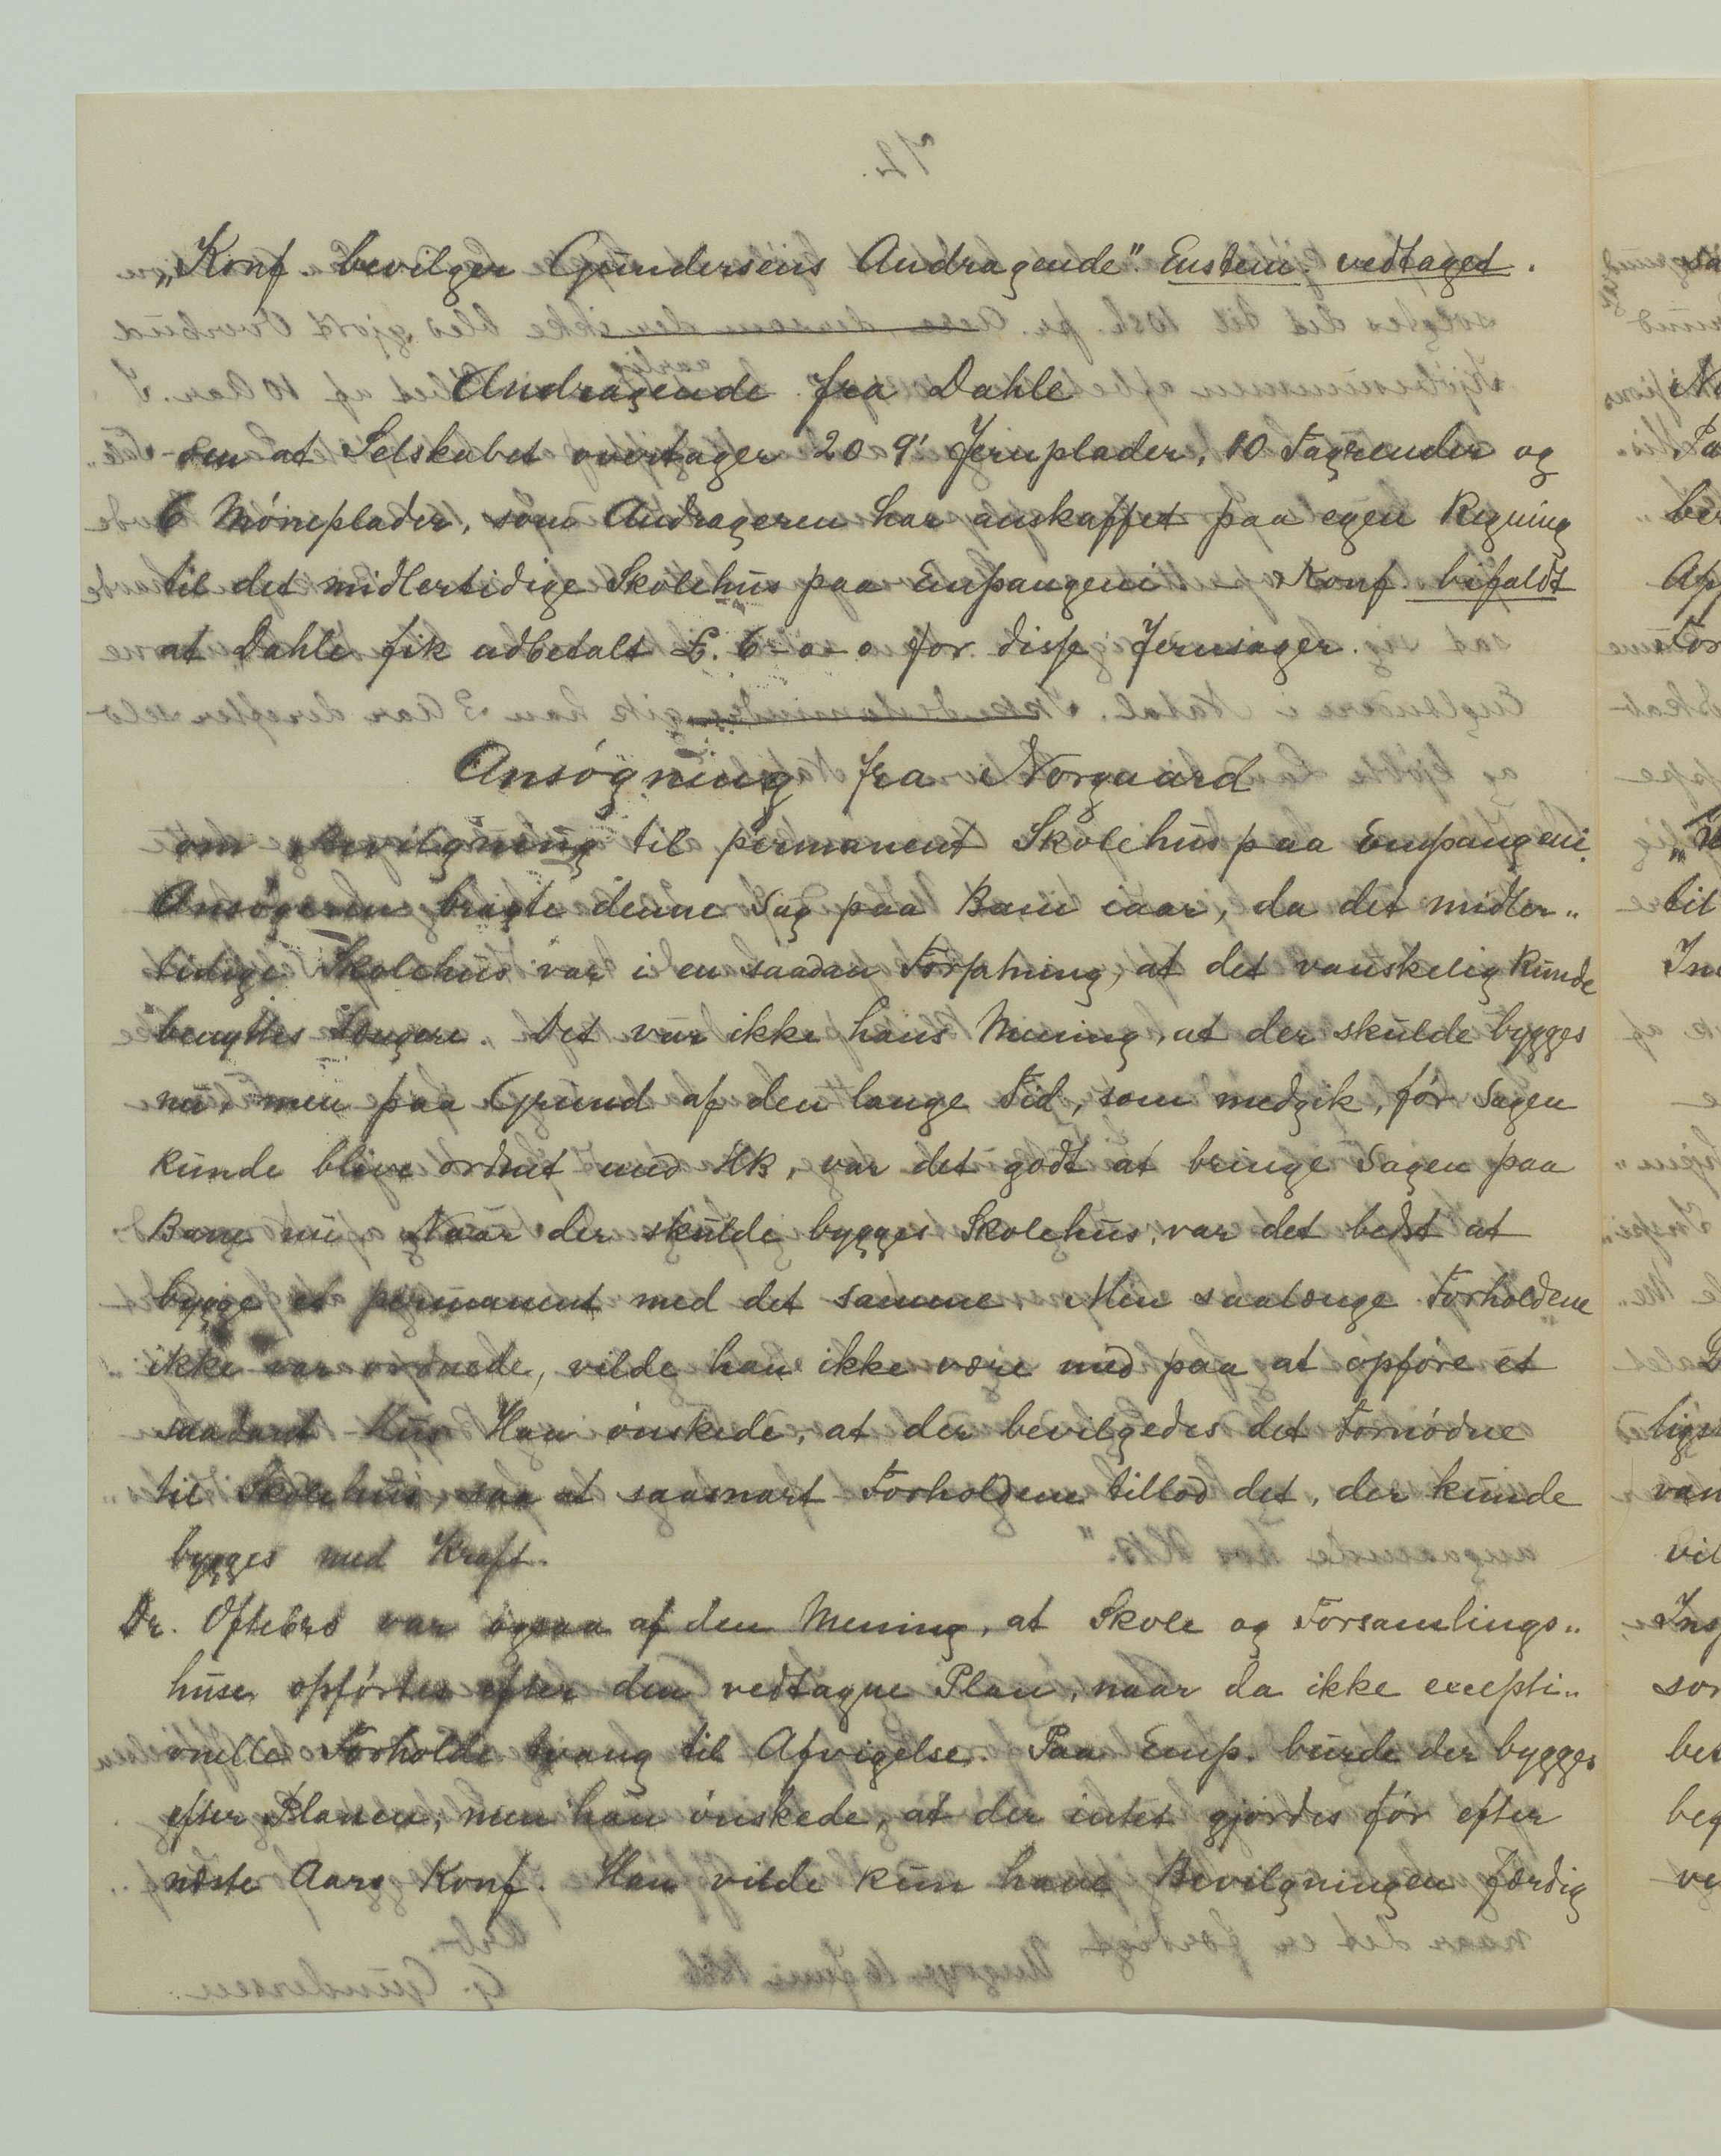 „Konf. bevilger Gundersens Andragende". Enstem. vedtaget.
Andragende fra Dahle
om at Selskabet overtager 20 9' Jernplader, 10 Tagrender og
6 Møneplader, som Andrageren har anskaffet paa egen Regning
til det midlertidige Skolehus paa Empangeni – Konf. bifaldt
at Dahle fik udbetalt £. 6-0-0 for disse Jernsager.
Ansøgning fra Norgaard
om Bevilgning til permanent Skolehus paa Empangeni.
Ansøgeren bragte denne Sag paa Bane iaar, da det midler„
tidige Skolehus var i en saadan Forfatning, at det vanskelig kunde
benyttes længere. Det var ikke hans Mening, at der skulde bygges
nu, men paa Grund af den lange Tid, som medgik, før Sagen
kunde blive ordnet med HB, var det godt at bringe Sagen paa
Bane nu. Naar der skulde bygges Skolehus, var det bedst at
bygge et permanent med det samme. Men saalænge Forholdene
ikke var ordnede, vilde han ikke være med paa at opføre et
saadant Hus. Han ønskede, at der bevilgedes det Fornødne
til Skolehus, saa at saasnart Forholdene tillod det, der kunde
bygges med Kraft.
Dr. Oftebro var ogsaa af den Mening, at Skole og Forsamlings„
huse opførtes efter den vedtagne Plan, naar da ikke excepti„
onelle Forholde tvang til Afvigelse. Paa Emp. burde der bygges
efter Planen, men han ønskede, at der intet gjordes før efter
næste Aars Konf. Han vilde kun have Bevilgningen færdig